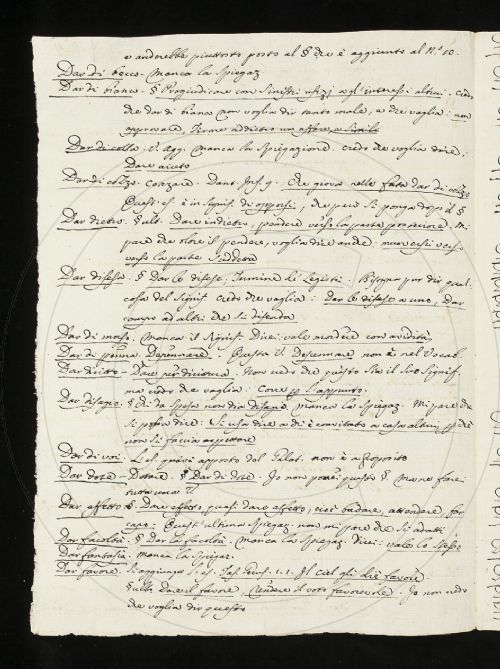 o anderebbe piuttosto posto al § che è aggiunto al N.º 10.
Dar di becco. Manca la Spiegaz
Dar di bianco. § Progiudicare con Sinistri ufizj agl'interessi altrui. credo
che dar di bianco non voglia dir tanto male, e che vaglia: non
approvare,
Dar di colla. Manca la Spiegazione. credo che voglia dire:
Dare aiuto
Dar di cozzo. cozzare. Dant. Inf. 9. Che giova nelle fata dar di cozzo
Quest' es. è in signif. di opporsi, che però si ponga dopo il §
Dar dietro. § ult. Dare indietro, pendere verso la parte posteriore. Mi
pare che oltre il pendere, voglia dire anche: muoversi verso
verso la parte Suddetta
Dar difesa. § Dar le difese, Termine de' Legisti. Bisogna pur dir qual
cosa del Signif. credo che vaglia: Dar le difese a uno, dar
campo ad altri che si difenda
Dar di morso. Manca il Signif. Direi: vale mordere con avidità,
Dar di penna. Depennare. Questo il Depennare non è nel Vocab.
Dar diritto - Dare per diritto. Non credo che questo Sia il Suo Signif.
ma credo che vaglia: Corre p l'appunto.
Dar disagio. § Chi dà spesa non dia disagio, Manca la Spiegaz. Mi pare che
si possa dire: Si usa dire a chi è convitato a casa altrui, p chè
non si faccia aspettare
Dar di voi. L' es. quivi apposto del Galat. non è a proposito
Dar dote - Dotare. § Dar di dote. Io non porrei questo §. Me ne farei
tutt' una
Dar, effetto §. Dare effetto, quasi dare affetto, cioè badare, attendere, far
capo. Quest' ultima Spiegaz. non mi pare che Si adatti
Dar facoltà. § Dar la facoltà. Manca la Spiegaz. direi: vale lo Stesso
Dar fantasia. Manca la Spiegaz.
Dar favore. Si aggiunga l' es. Il ciel gli diè favore.
§ ult. Dare il favore, Rendere il voto favorevole. Io non credo
che voglia dir questo